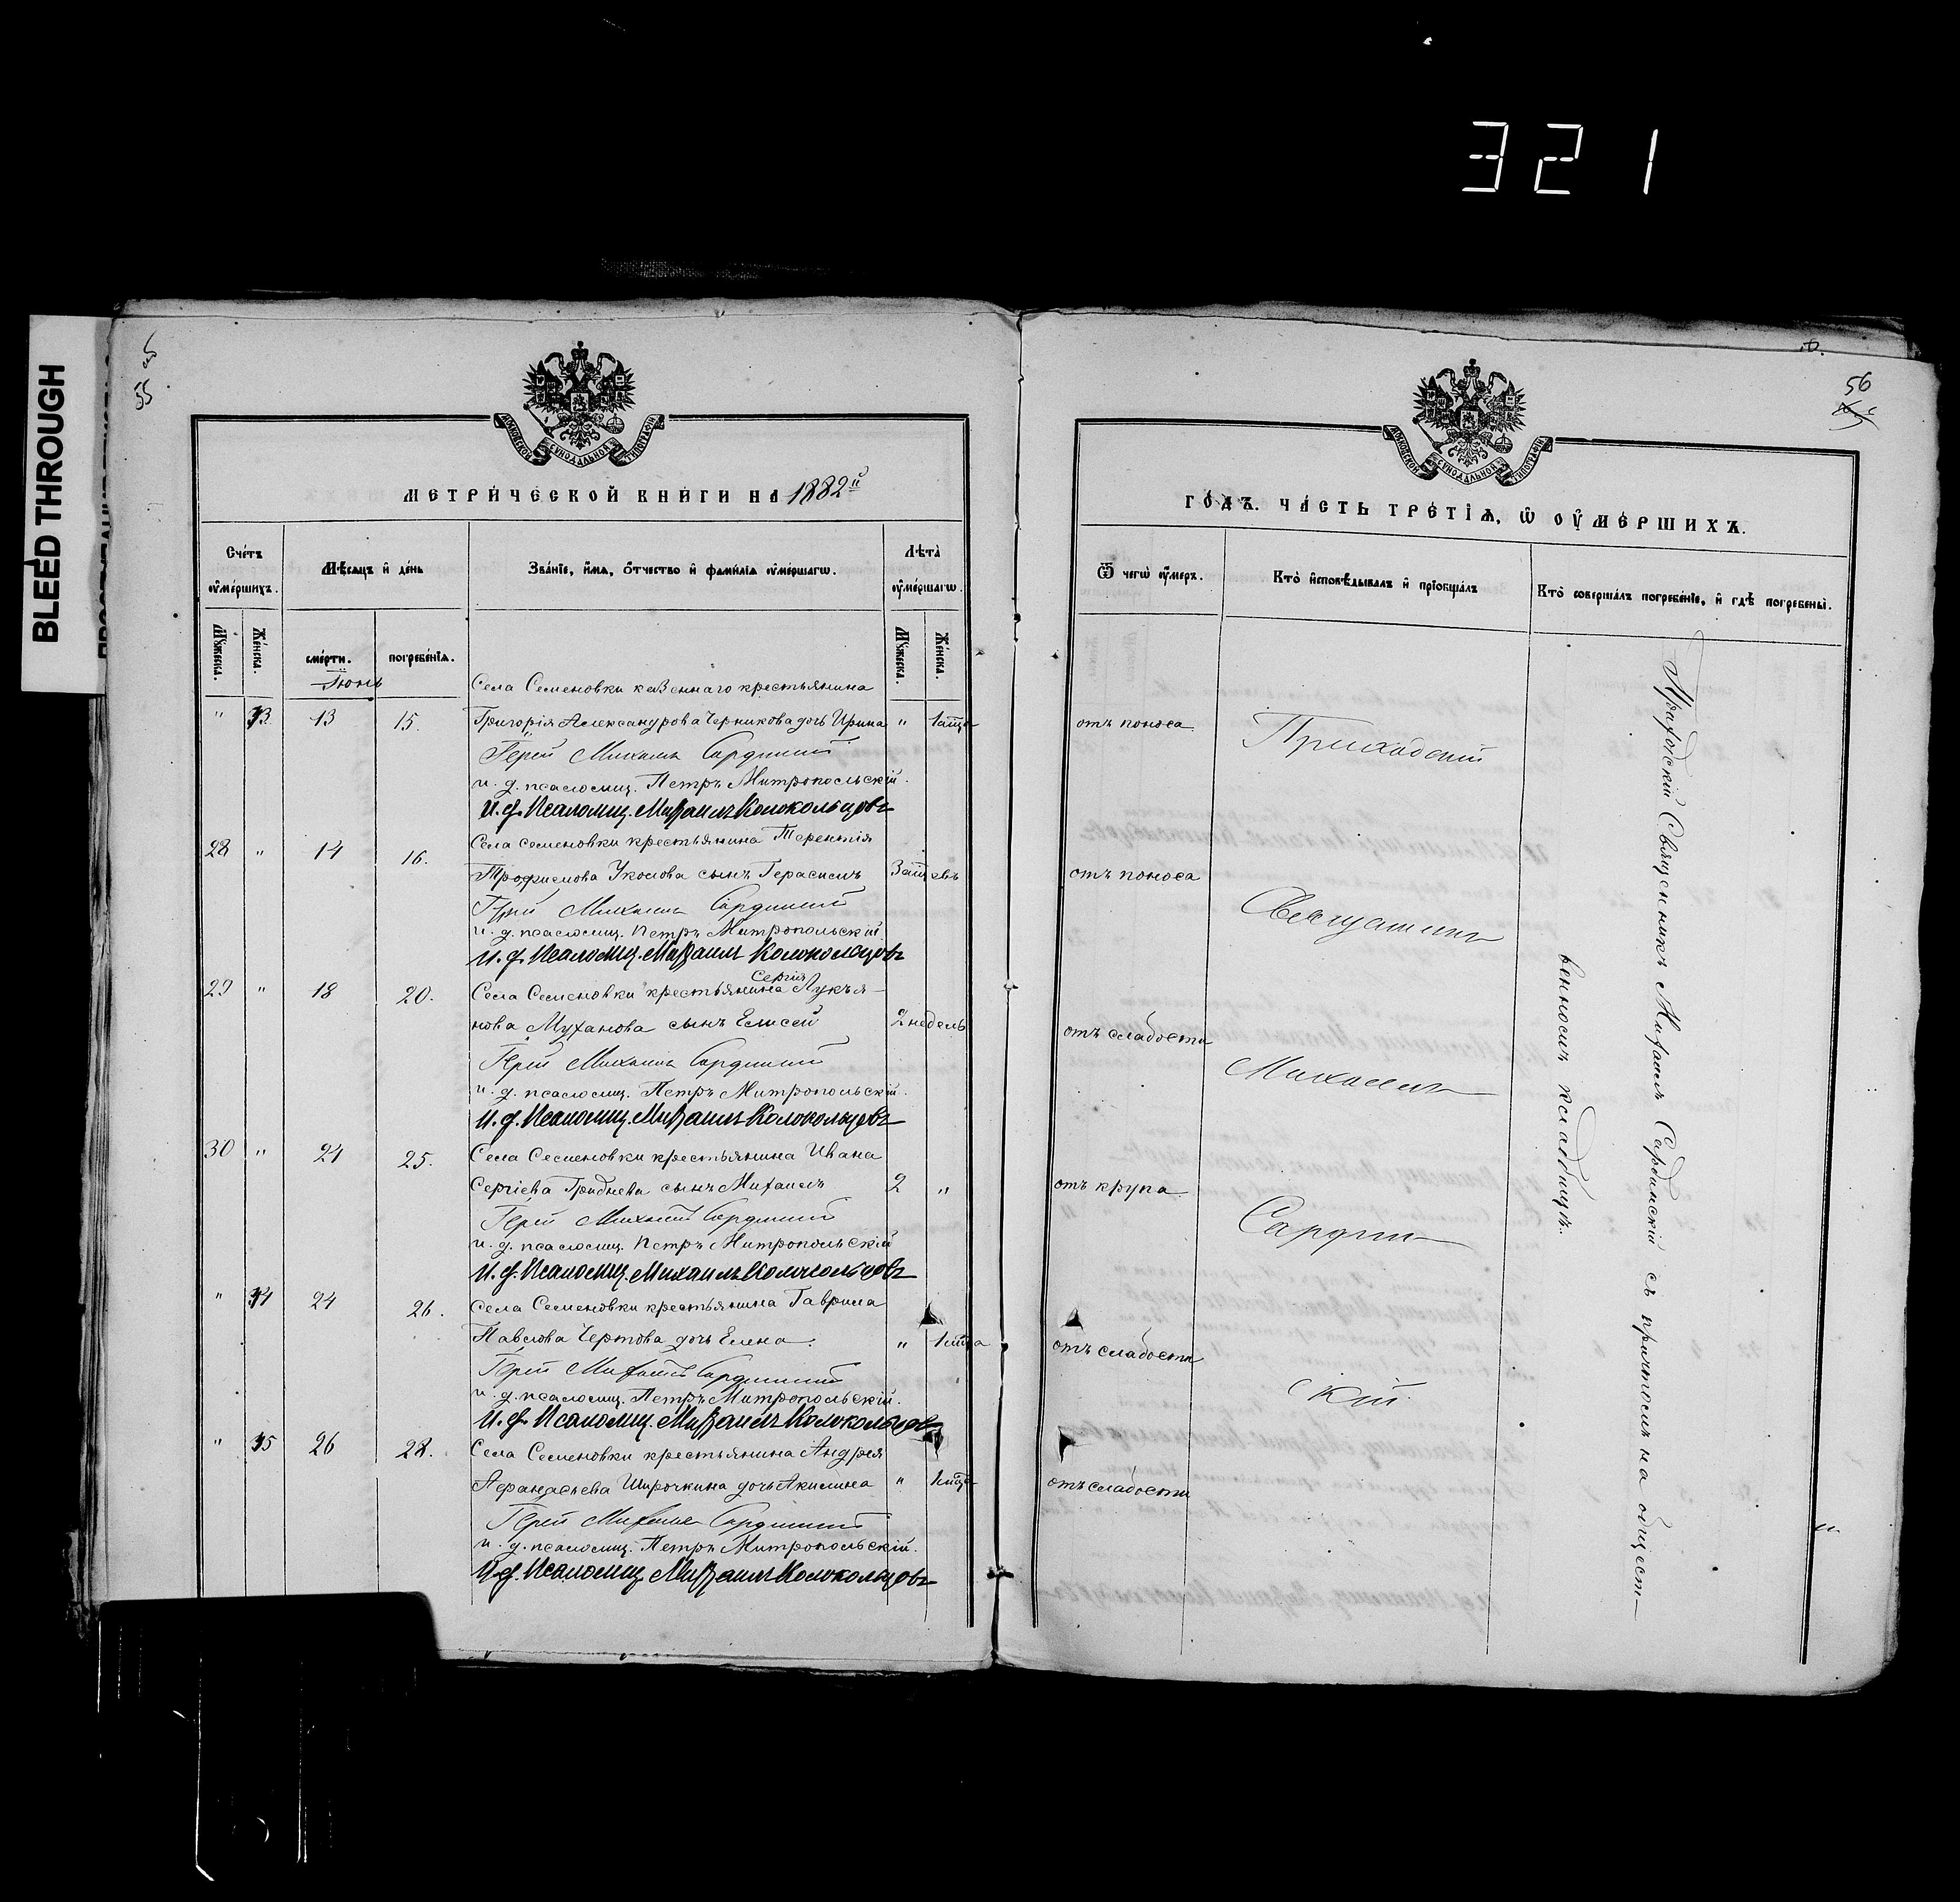 321
BLEED THROUGH
55
56
МОСКОВСКОЙ СѴНОДАЛЬНОЙ ТИПОГРАФІИ
МОСКОВСКОЙ СѴНОДАЛЬНОЙ ТИПОГРАФІИ
МЕТРИЧЕСКОЙ КНИГИ НА 1882й
ГОДЪ. ЧАСТЬ ТРЕТІѦ, Ѡ ОУМЕРШИХЪ.
Счетъ оумершихъ.
Мѣсяцъ и день
Званіе, имѧ, отчество и фамиліѧ оумершагѡ.
Лѣта оумершагѡ.
Ѿ чегѡ оумеръ.
Кто исповѣдывалъ и пріобщалъ
Кто совершалъ погребеніе, и гдѣ погребены.
Мꙋжеска.
Женска.
смерти.
погребеніѧ.
Мꙋжеска.
Женска.
Іюнь
Села Семеновки казеннаго крестьянина
" 13. 13 15. Григорія Александрова Черникова дочь Ирина " отъ поноса
Іерей Михаилъ Сардинскій
и. д. псаломщ. Петръ Митропольскій.
И. д. Псаломщ. Михаилъ Колокольцовъ
Села Семеновки крестьянина Терентія
28 " 14 16. Трофимова Уколова сынъ Герасимъ отъ поноса
Іерей Михаилъ Сардинскій
и. д. псаломщ. Петръ Митропольскій
И. д. Псаломщ. Михаилъ Колокольцовъ
Сергія
29 " 18 20. Села Семеновки крестьянина Лукья-
нова Муханова сынъ Елисей 2 недель отъ слабости
Іерей Михаилъ Сардинскій
и. д. псаломщ. Петръ Митропольскій.
И. д. Псаломщ. Михаилъ Колокольцовъ
30 " 21 25. Села Семеновки крестьянина Ивана
Сергіева Гриднева сынъ Михаилъ 2 " отъ крупа
Іерей Михаилъ Сардинскій
и. д. псаломщ. Петръ Митропольскій
И. д. Псаломщ. Михаилъ Колокольцовъ
" 14 24 26. Села Семеновки крестьянина Гаврила
Павлова Чертова дочь Елена. " отъ слабости
Іерей Михаилъ Сардинскій
и. д. псаломщ. Петръ Митропольскій.
И. д. Псаломщ. Михаилъ Колокольцовъ
" 15 26 28. Села Семеновки крестьянина Андрея
Афанасьева Широчкина дочь Акилина " отъ слабости
Іерей Михаилъ Сардинскій
и. д. псаломщ. Петръ Митропольскій.
И. д. Псаломщ. Михаилъ Колокольцовъ
Приходскій
Священникъ
Михаилъ
Сардин-
скій.
Приходскій Священникъ Михаилъ Сардинскій съ причтомъ на общест-
венномъ кладбищѣ.